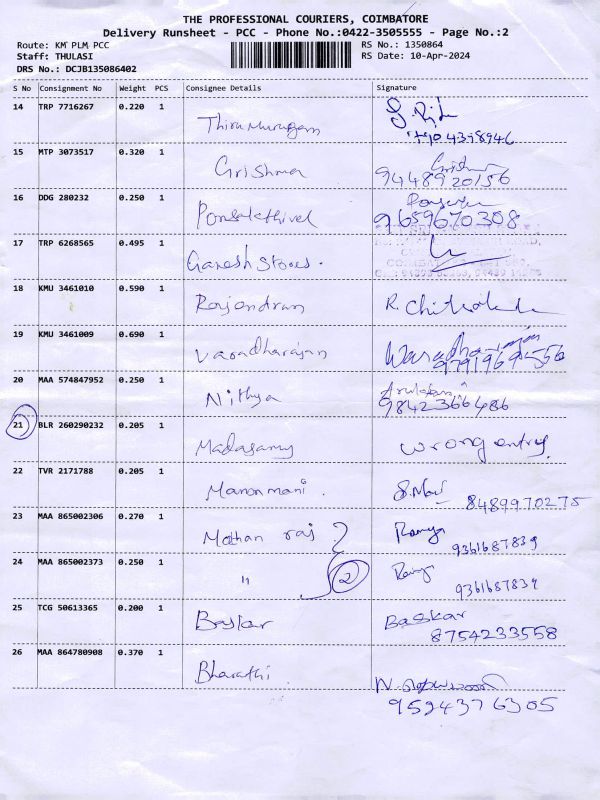 THE PROFESSIONAL COURIERS, COIMBATORE
Delivery Runsheet - PCC - Phone No.:0422-3505555 - Page No.:2
Route: KM PLM PCC
Staff: THULASI
DRS No.: DCJB135086402
RS No.: 1350864
RS Date: 10-Apr-2024
S No Consignment No Weight PCS Consignee Details Signature
14 TRP 7716267 0.220 1 Thirumurugan
15 MTP 3073517 0.320 1 Grishma
9448920156
16 DDG 280232 0.250 1
9659670308
17 TRP 6268565 0.495 1 Ganesh Stores.
18 KMU 3461010 0.590 1 Rajendran R.
19 KMU 3461009 0.690 1 Varadharajan
9791969556
20 MAA 574847952 0.250 1 Nithya
9842366486
21 BLR 260290232 0.205 1 Madasamy wrong entry.
22 TVR 2171788 0.205 1 Manonmani. S.
8489970275
23 MAA 865002306 0.270 1 Mohan raj Ramya
9361687839
24 MAA 865002373 0.250 1 " 2 Ramya
9361687839
25 TCG 50613365 0.200 1 Baskar Baskar
8754233558
26 MAA 864780908 0.370 1 Bharathi.
9594376305